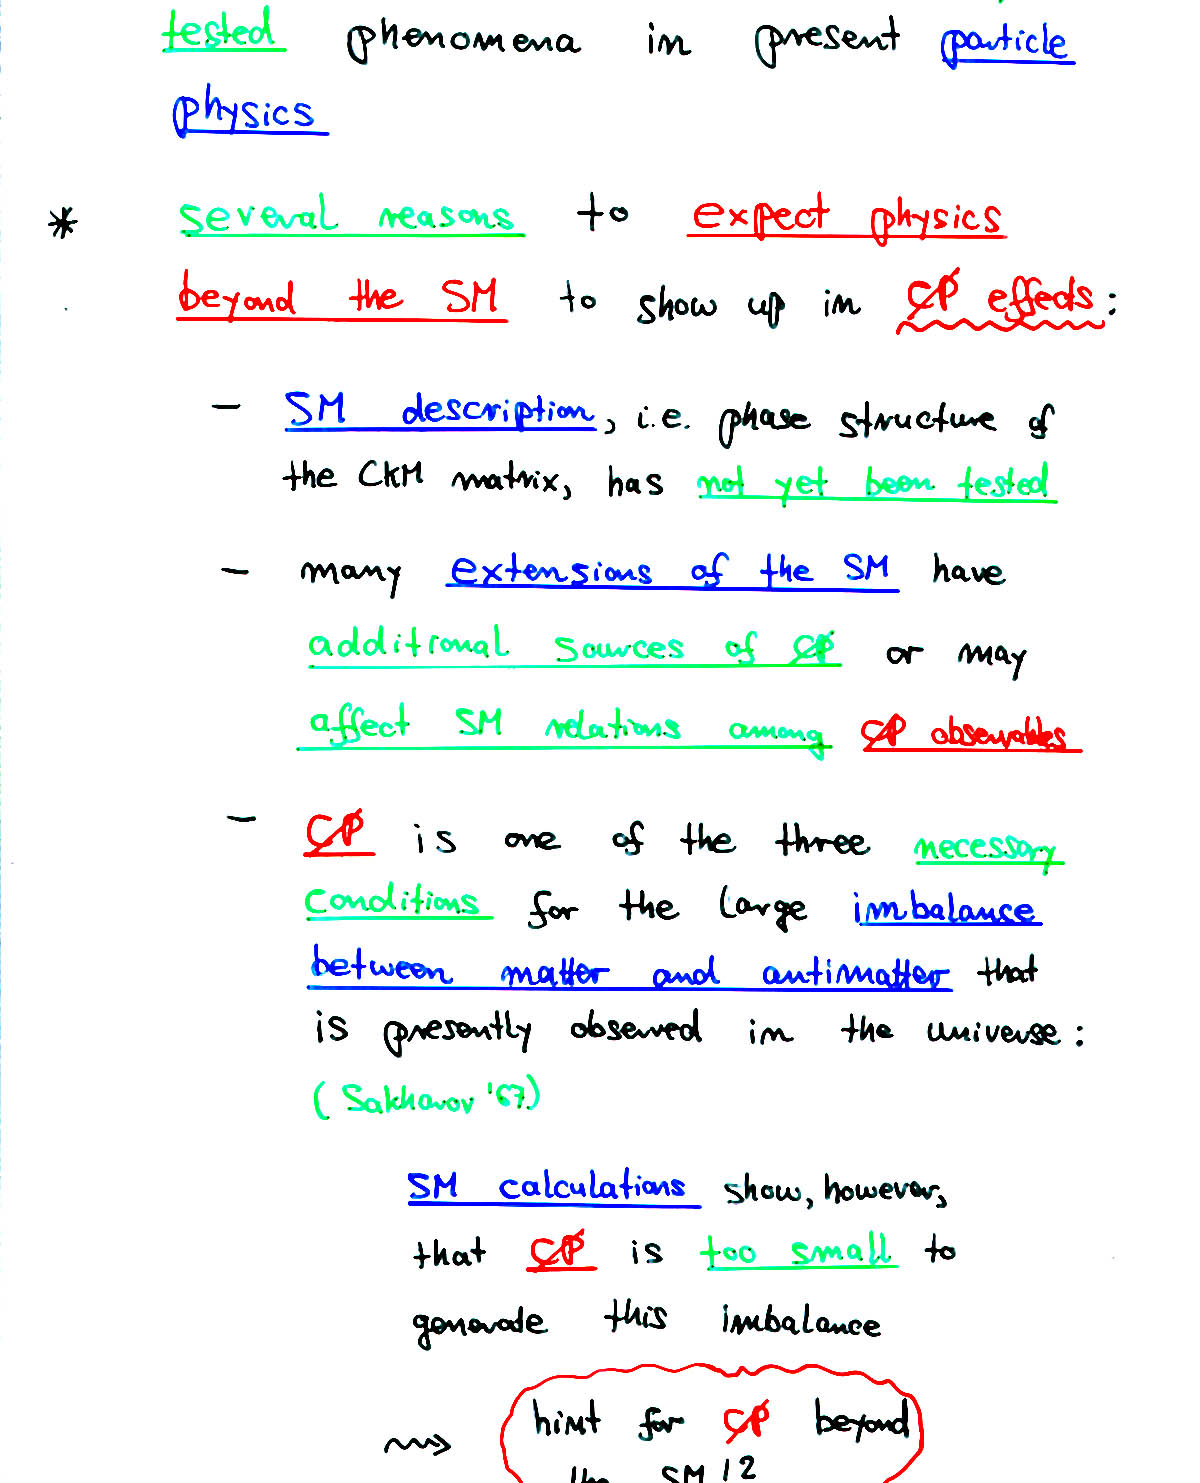 tested phenomena in present particle
physics
* several reasons to expect physics
beyond the SM to show up in C̸P̸ effects:
- SM description, i.e. phase structure of
the CKM matrix, has not yet been tested
- many extensions of the SM have
additional sources of C̸P̸ or may
affect SM relations among C̸P̸ observables
- C̸P̸ is one of the three necessary
conditions for the large imbalance
between matter and antimatter that
is presently observed in the universe:
(Sakharov '67)
SM calculations show, however,
that C̸P̸ is too small to
generate this imbalance
⇝ hint for C̸P̸ beyond
the SM!?